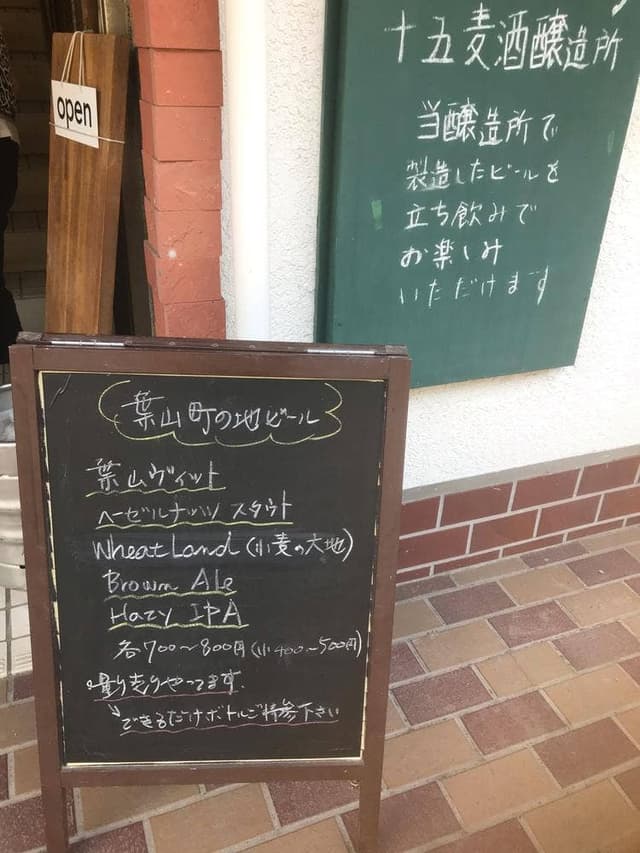 open
十五麦酒醸造所
当醸造所で
製造したビールを
立ち飲みで
お楽しみ
いただけます
葉山町の地ビール
葉山ヴィット
ヘーゼルナッツ スタウト
Wheat Land (小麦の大地)
Brown Ale
Hazy IPA
各700〜800円(小400〜500円)
量り売りやってます.
できるだけボトルご持参下さい